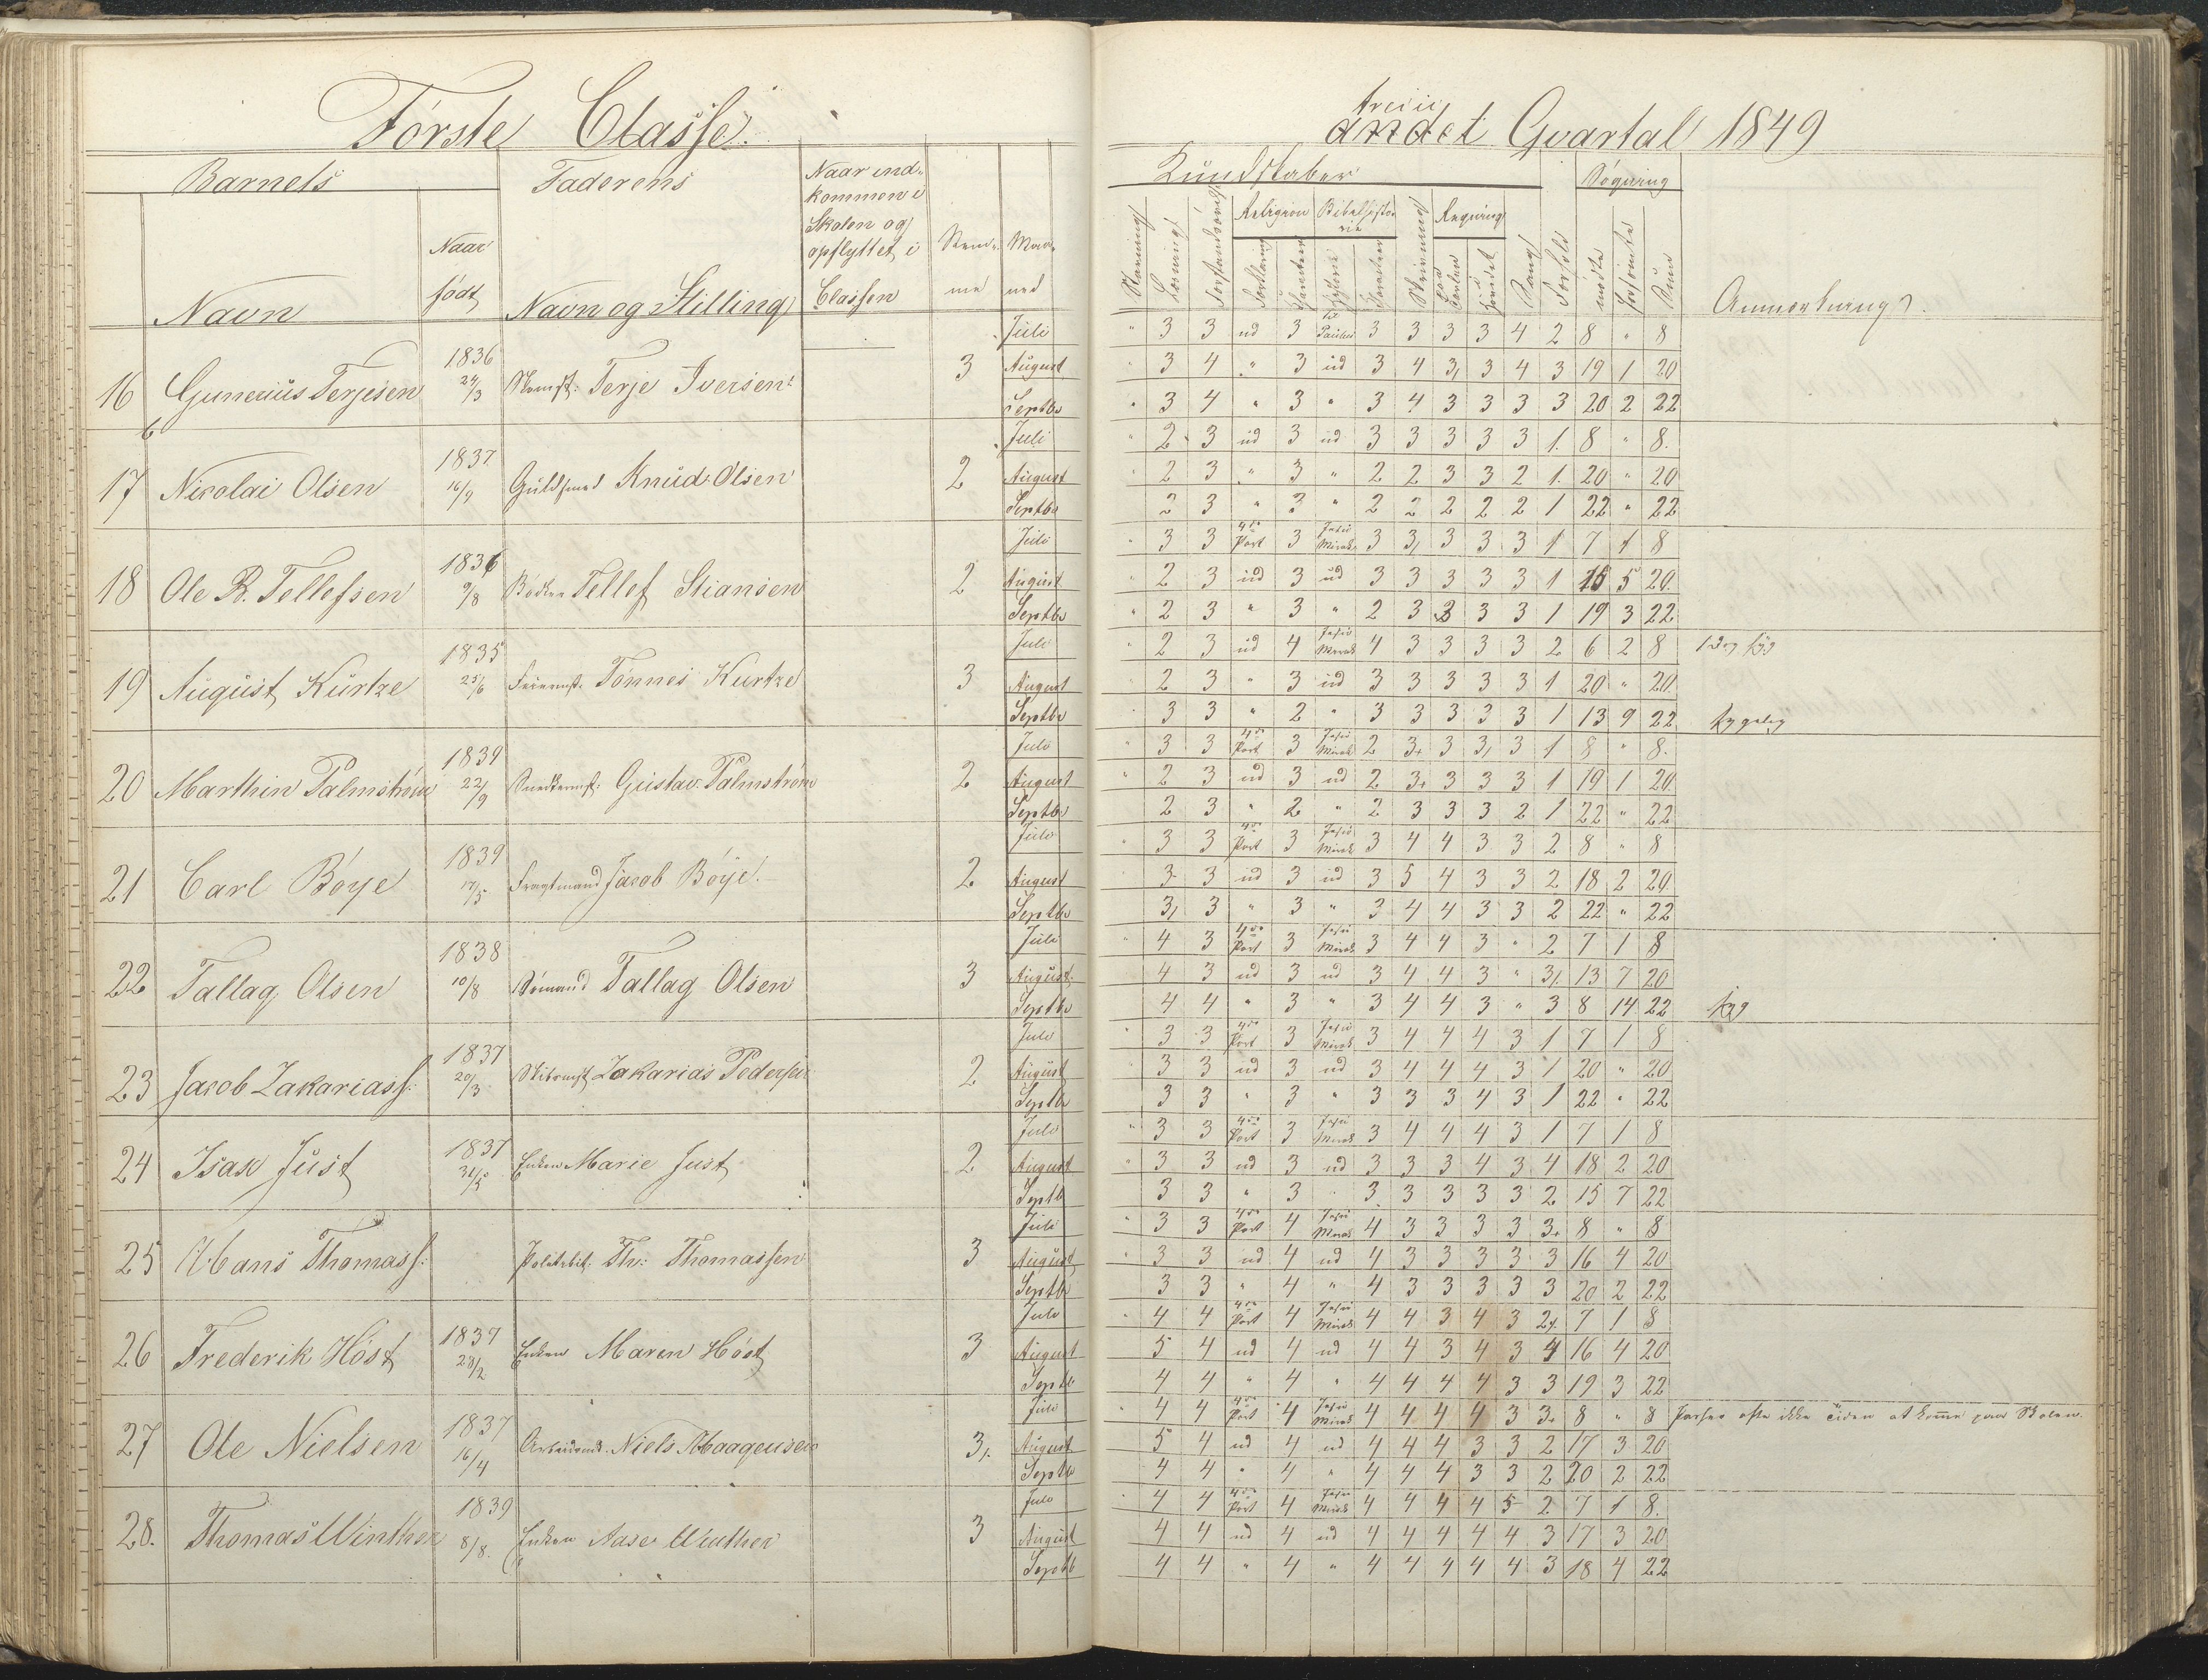 Förste Classe.
andet Qvartal 1849
Barnets
Faderens
Naar ind-
kommen i
Skolen og
opflyttet i
Classen
Navn
Naar
födt
Navn og Stilling
Stem-
me
Maa-
ned
Kundskaber
Sögning
Religion Bibelhisto-
rie
Regning
Anmærkning.
16 Gunerius Terjesen 1836 24/3 Terje Iversen 3
Juli " 3 3 ud 3 Paulus 3 3 3 3 4 2 8 " 8
August " 3 4 " 3 ud 3 4 3 3 4 3 19 1 20
Septbr " 3 4 " 3 " 3 4 3 3 3 3 20 2 22
17 Nicolai Olsen 1837 16/9 Guldsmed Knud Olsen 2
Juli " 2 3 ud 3 ud 3 3 3 3 3 1 8 " 8.
August " 2 3 " 3 " 2 2 3 3 2 1 20 " 20
Septbr 2 3 " 3 " 2 2 2 2 2 1 22 " 22
18 Ole R. Tellefsen 1836 9/8 Bödker Tellef Stiansen 2
Juli " 3 3 4de Part 3 Jesu Mirak 3 3 3 3 3 1 7 1 8
August " 2 3 ud 3 ud 3 3 3 3 3 1 15 5 20
Septbr " 2 3 " 3 " 2 3 3 3 3 1 19 3 22
19 August Kurtze 1835 25/6 Tönnes Kurtze 3
Juli " 2 3 ud 4 Jesu Mirak 4 3 3 3 3 2 6 2 8 1 Dag syg
August " 2 3 " 3 ud 3 3 3 3 3 1 20 " 20
Septbr 3 3 " 2 " 3 3 3 3 3 1 13 9 22 sygelig
20 Marthin Palmström 1839 22/9 Snedkermst: Gustav Palmström 2
Juli " 3 3 4de Part 3 Jesu Mirak 2 3+ 3 3 3 1 8 " 8.
August " 2 3 ud 3 ud 2 3+ 3 3 3 1 19 1 20
Septbr 2 3 " 2 " 2 3 3 3 2 1 22 " 22
21 Carl Böye 1839 17/5 Fragtmand Jacob Böye. 2
Juli " 3 3 4de Part 3 Jesu Mirak 3 4 4 3 3 2 8 " 8
August 3 3 ud 3 ud 3 5 4 3 3 2 18 2 20
Septbr 3 3 " 3 " 3 4 4 3 3 2 22 " 22
22 Tallag Olsen 1838 10/8 Sömand Tallag Olsen 3
Juli " 4 3 4de Part 3 Jesu Mirak 3 4 4 3 " 2 7 1 8
August 4 3 ud 3 ud 3 4 4 3 " 3 13 7 20
Septbr 4 4 " 3 " 3 4 4 3 " 3 8 14 22 syg
23 Jacob Zakariass: 1837 20/3 Zakarias Pedersen 2
Juli " 3 3 4de Part 3 Jesu Mirak 3 4 4 4 3 1 7 1 8
August 3 3 ud 3 ud 3 4 4 4 3 1 20 " 20
Septbr 3 3 " 3 " 3 3 3 4 3 1 22 " 22
24 Isak Just 1837 31/5 Enken Marie Just 2
Juli " 3 3 4de Part 3 Jesu Mirak 3 4 4 4 3 1 7 1 8
August " 3 3 ud 3 ud 3 3 3 4 3 4 18 2 20
Septb 3 3 " 3 " 3 3 3 3 3 2 15 7 22
25 Hans Thomass: Politbet. Th: Thomassen 3
Juli " 3 3 4de Part 4 Jesu Mirak 4 3 3 3 3 3+ 8 " 8
August " 3 3 ud 4 ud 4 3 3 3 3 3 16 4 20
Septbr 3 3 " 4 " 4 3 3 3 3 3 20 2 22
26 Frederik Höst 1837 28/2 Enken Maren Höst 3
Juli " 4 4 4de Part 4 Jesu Mirak 4 4 3 4 3 2 7 1 8
August 5 4 ud 4 ud 4 4 3 4 3 4 16 4 20
Septb 4 4 " 4 " 4 4 4 4 3 3 19 3 22
27 Ole Nielsen 1837 16/4 Arbeidsmd. Niels Haagensen 3
Juli " 4 4 4de Part 4 Jesu Mirak 4 4 4 4 3 3+ 8 " 8 Passer ofte ikke Tiden at komme paa Skolen.
August 5 4 ud 4 ud 4 4 4 3 3 2 17 3 20
Septb 4 4 " 4 " 4 4 4 3 3 2 20 2 22
28. Thomas Winther 1839 8/8. Enken Aase Winther 3
Juli " 4 4 4de Part 4 Jesu Mirak 4 4 4 4 5 2 7 1 8.
August 4 4 ud 4 ud 4 4 4 4 4 3 17 3 20
Septb 4 4 " 4 " 4 4 4 4 4 3 18 4 22